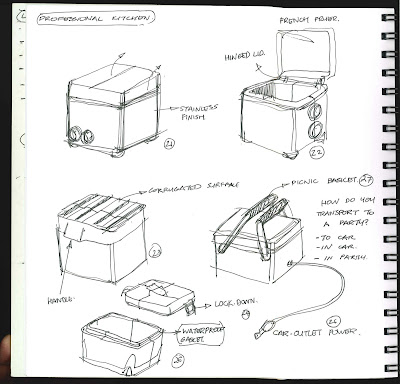 PROFESSIONAL KITCHEN
FRENCH FRYER.
HINGED LID.
STAINLESS
FINISH
21
22
CORRUGATED SURFACE
PICNIC BASKET. 27
HOW DO YOU
TRANSPORT TO
A PARTY?
- TO CAR
- IN CAR.
- IN PARTY.
23
HANDLE
LOCK-DOWN.
WATERPROOF
GASKET.
26
CAR-OUTLET POWER.